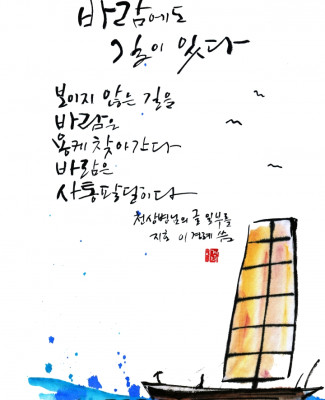 바람에도
길이 있다
보이지 않은 길을
바람은
용케 찾아간다
바람은
사통팔달이다
천상병님의 글 일부를
지효 이경례 씀